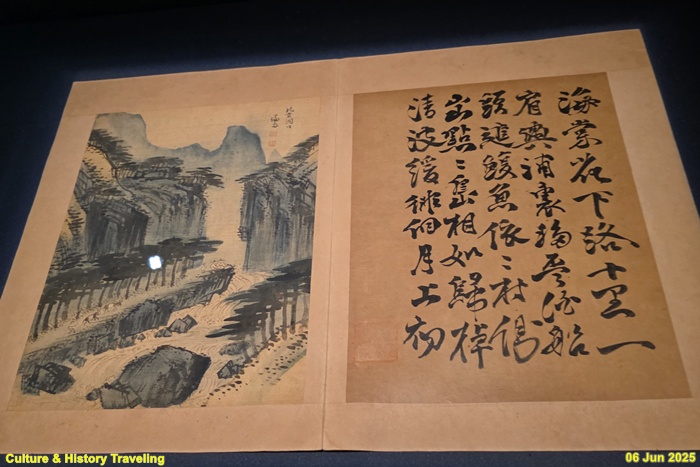 海棠花下路十里一
肩輿浦裏酒船
頭進鰒魚依々村
出點々島相如歸棹
清波緩徘徊月上初
Culture & History Traveling
06 Jun 2025